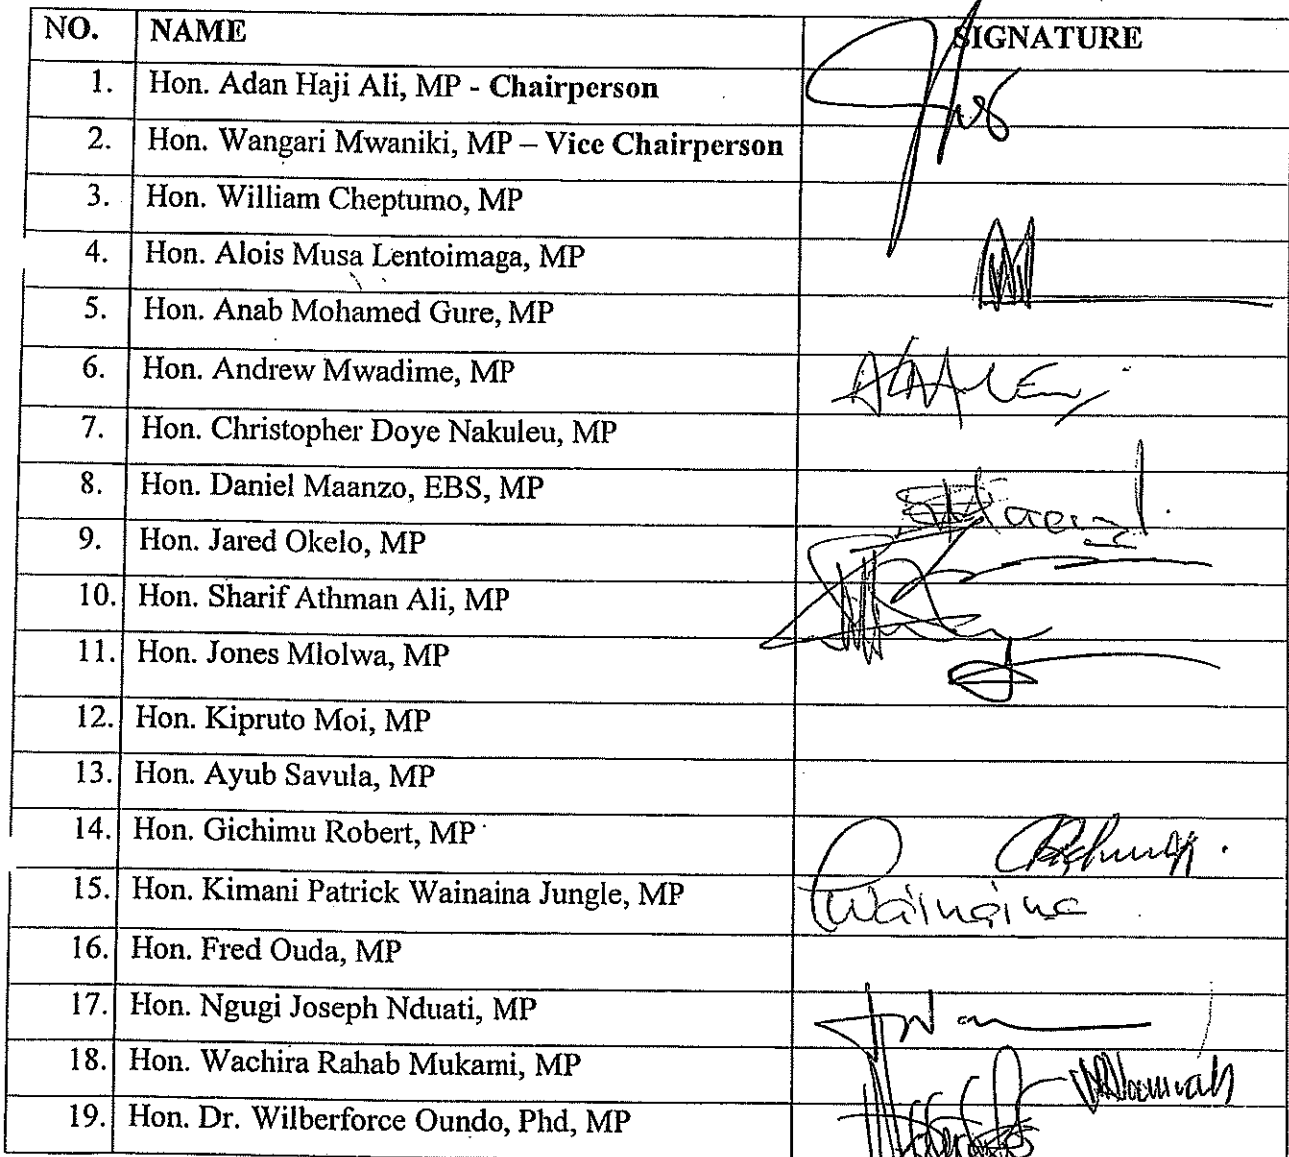 NO. NAME SIGNATURE
1. Hon. Adan Haji Ali, MP - Chairperson
2. Hon. Wangari Mwaniki, MP – Vice Chairperson
3. Hon. William Cheptumo, MP
4. Hon. Alois Musa Lentoimaga, MP
5. Hon. Anab Mohamed Gure, MP
6. Hon. Andrew Mwadime, MP
7. Hon. Christopher Doye Nakuleu, MP
8. Hon. Daniel Maanzo, EBS, MP
9. Hon. Jared Okelo, MP
10. Hon. Sharif Athman Ali, MP
11. Hon. Jones Mlolwa, MP
12. Hon. Kipruto Moi, MP
13. Hon. Ayub Savula, MP
14. Hon. Gichimu Robert, MP
15. Hon. Kimani Patrick Wainaina Jungle, MP Wainaina
16. Hon. Fred Ouda, MP
17. Hon. Ngugi Joseph Nduati, MP
18. Hon. Wachira Rahab Mukami, MP
19. Hon. Dr. Wilberforce Oundo, Phd, MP